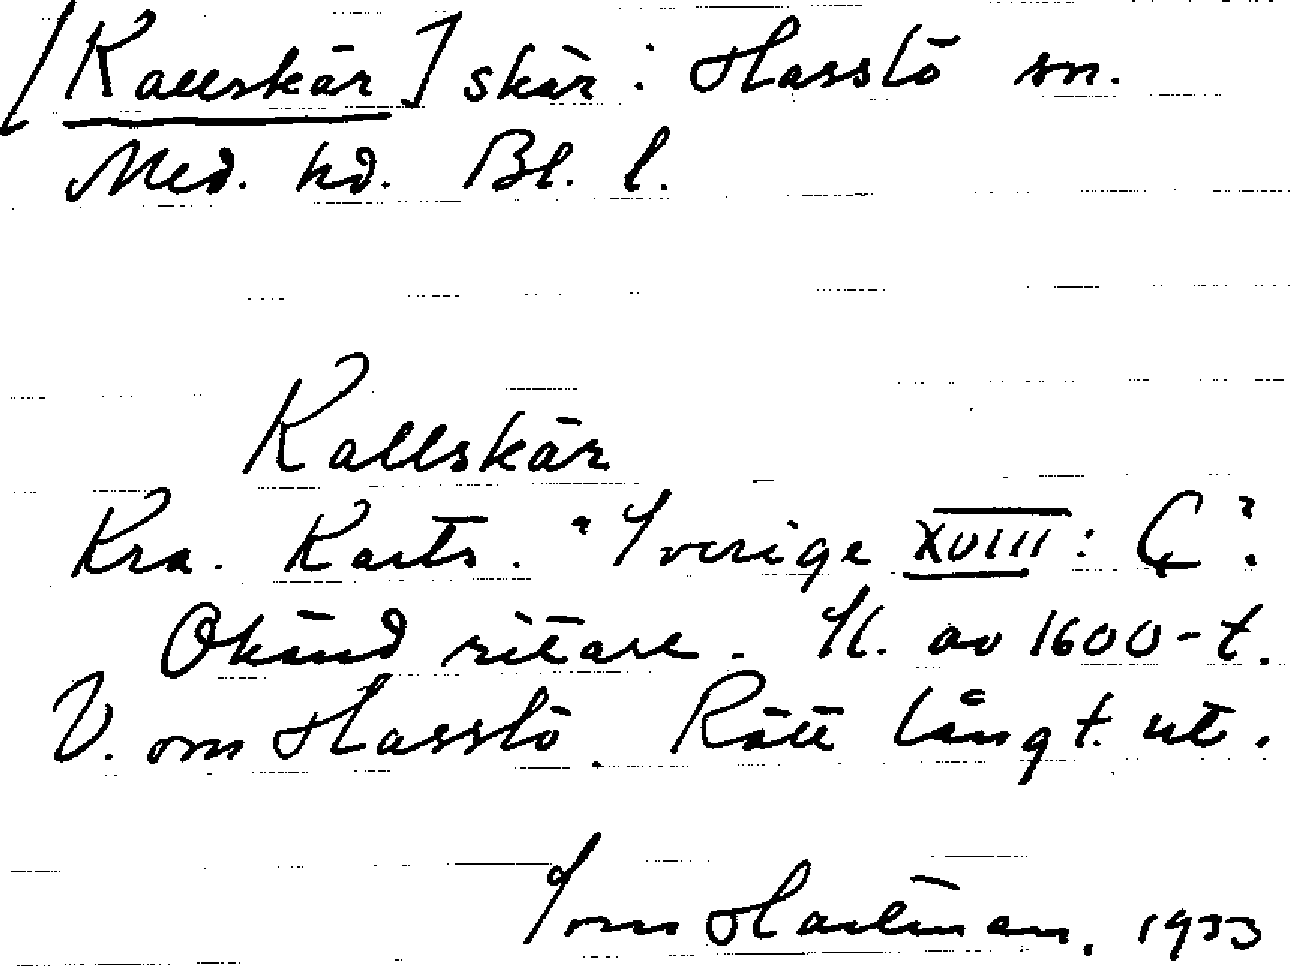 [Kallskär] skär: Hasslö sn.
Med. hd. Bl. l.
Kallskär
Kra. Kart. "Sverige XVIII: C".
Okänd ritare. Sl. av 1600-t.
V. om Hasslö. Rätt långt ut.
Hartman. 1933